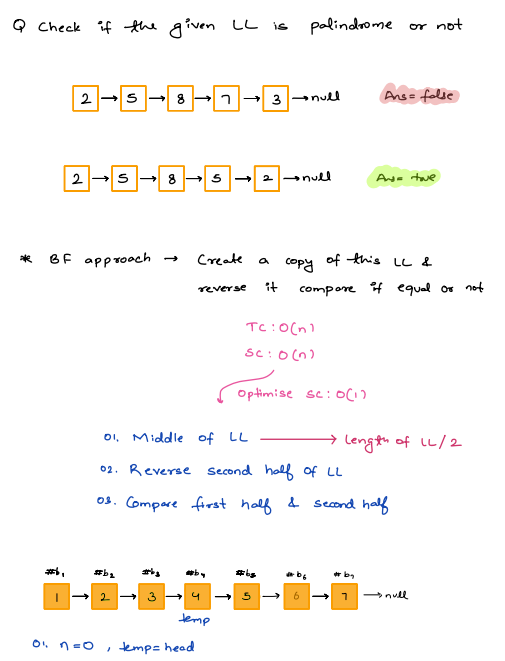 Q Check if the given LL is palindrome or not
2 → 5 → 8 → 7 → 3 → null Ans = false
2 → 5 → 8 → 5 → 2 → null Ans = true
* BF approach → Create a copy of this LL &
reverse it compare if equal or not
TC : O(n)
SC : O(n)
Optimise SC : O(1)
01. Middle of LL → Length of LL/2
02. Reverse second half of LL
03. Compare first half & second half
#b1 #b2 #b3 #b4 #b5 #b6 #b7
1 → 2 → 3 → 4 → 5 → 6 → 7 → null
temp
01. n=0 , temp = head